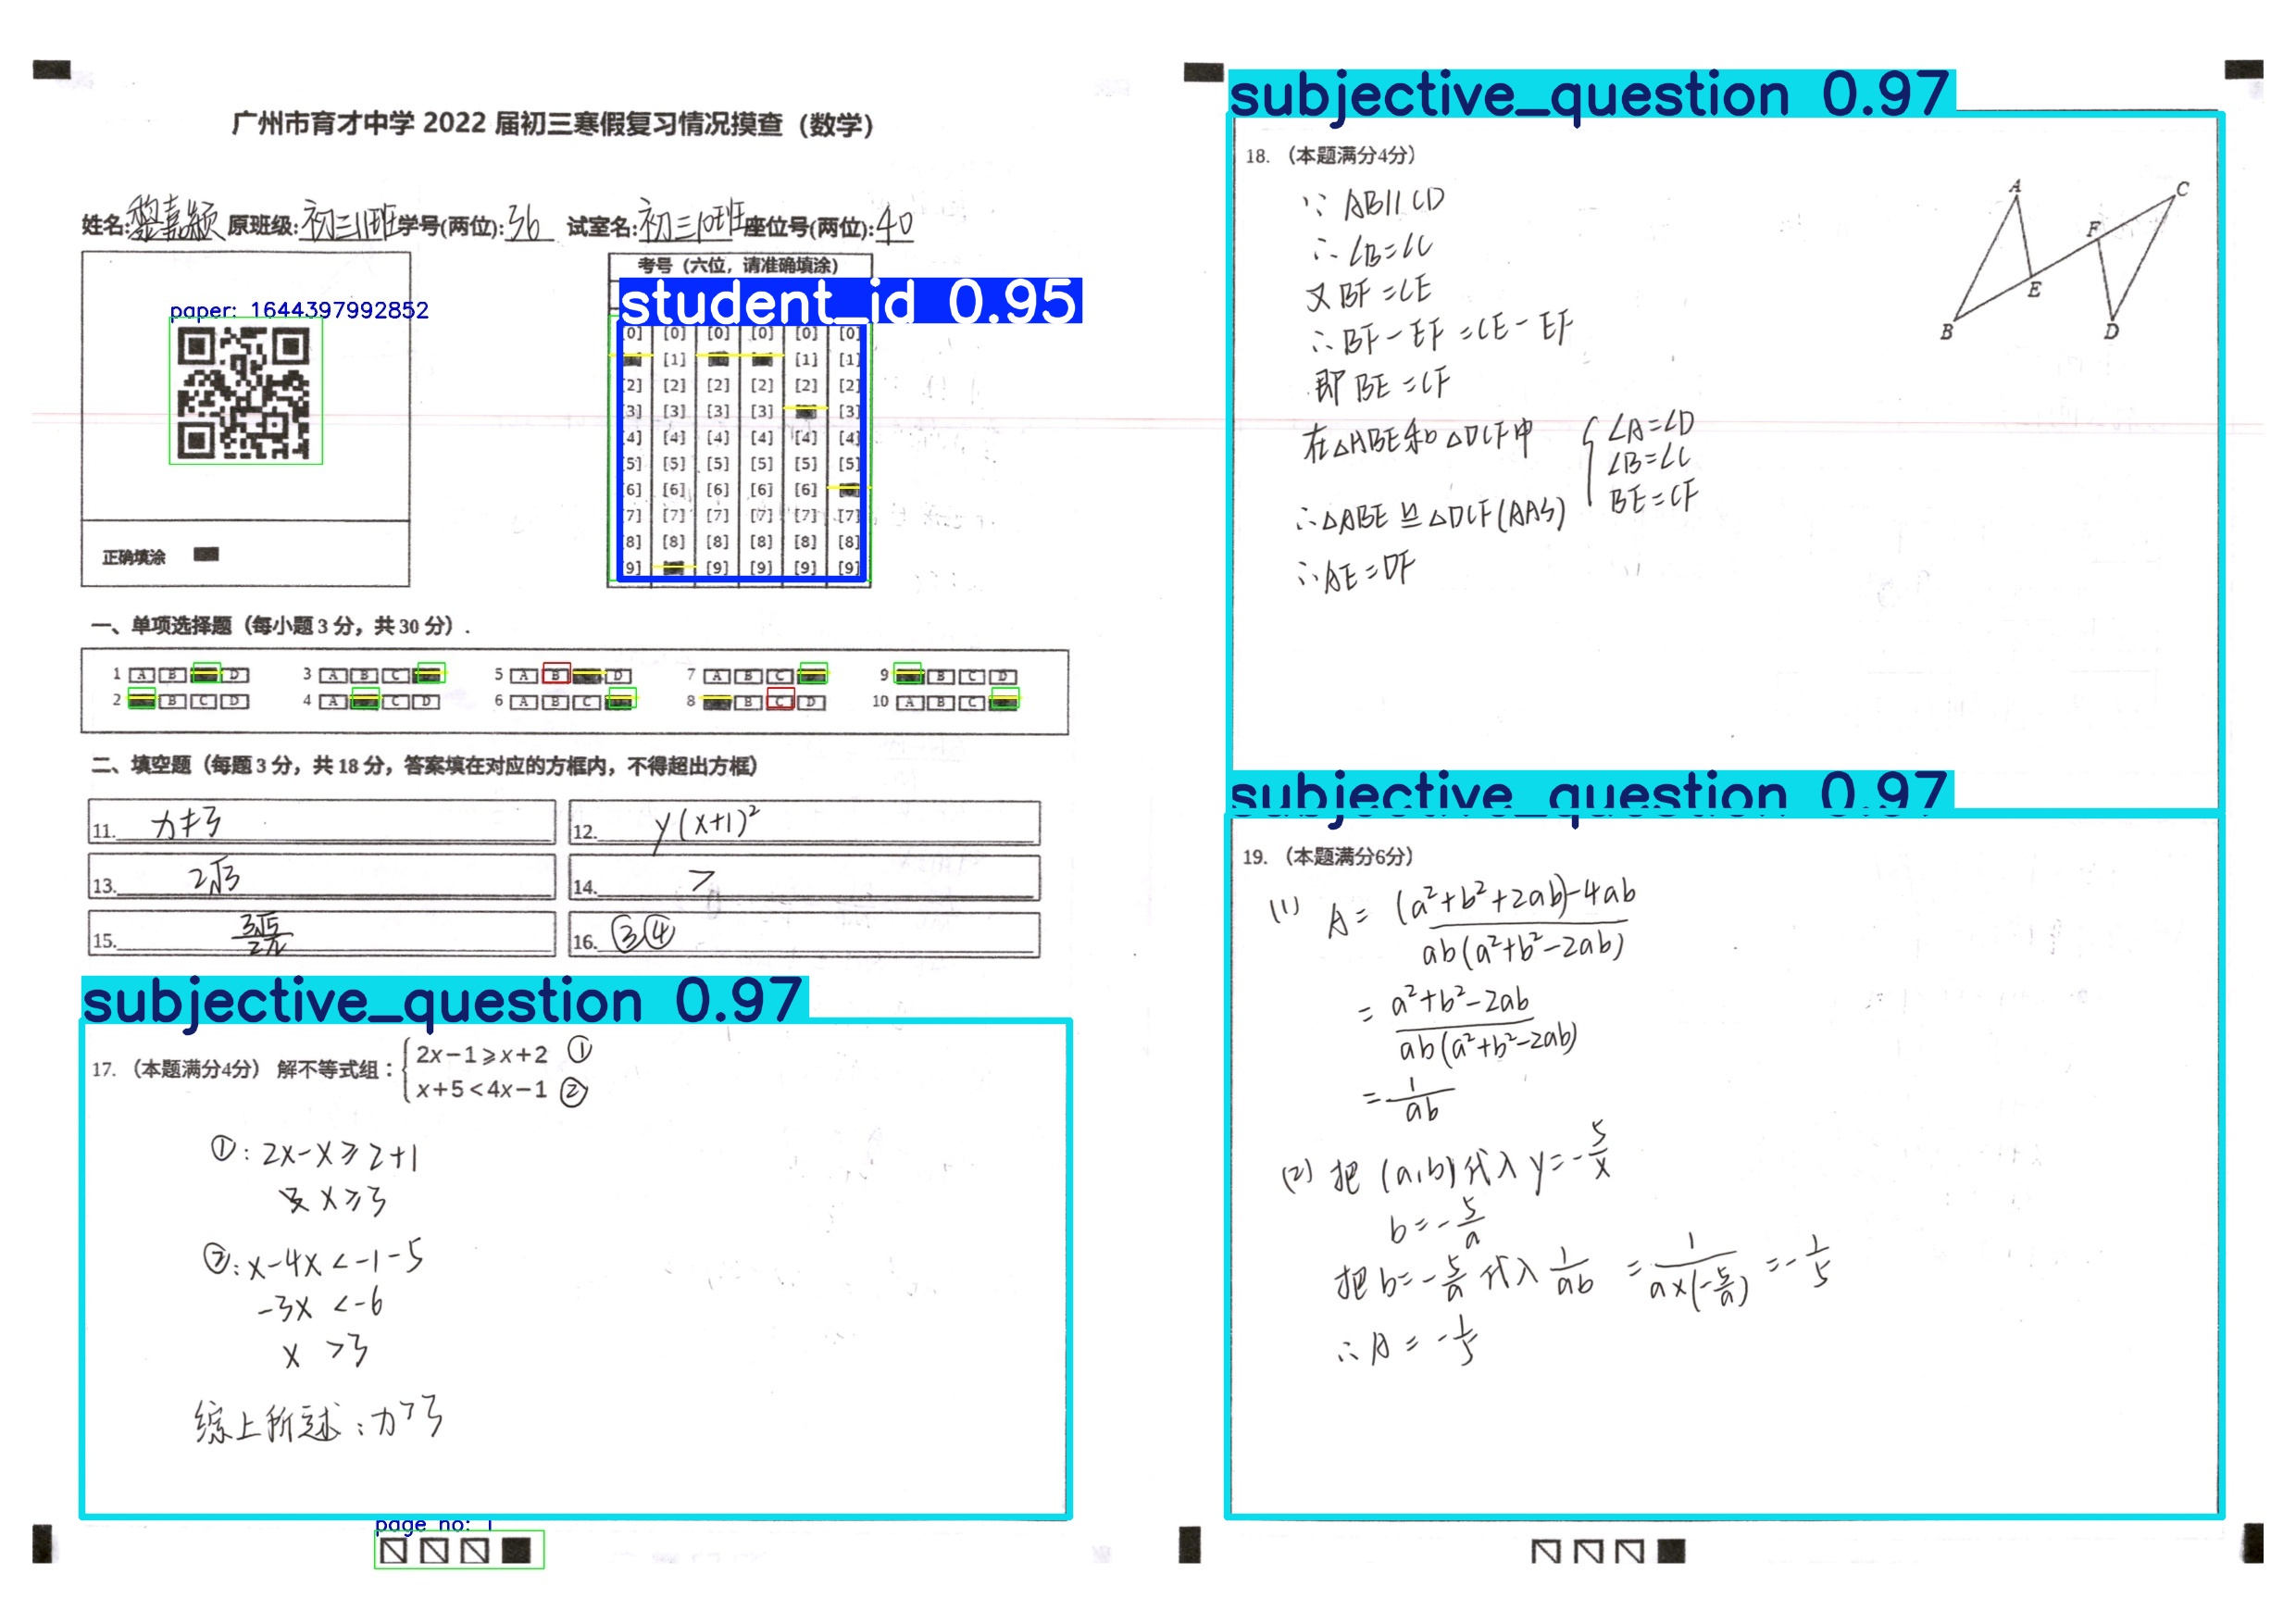 广州市育才中学 2022 届初三寒假复习情况摸查（数学）
姓名:黎嘉颖 原班级:初三11班 学号(两位):36 试室名:初三10班 座位号(两位):40
paper: 1644397992852
正确填涂
考号（六位，请准确填涂）
student_id 0.95
[0] [0] [0] [0] [0] [0]
[1] [1] [1]
[2] [2] [2] [2] [2] [2]
[3] [3] [3] [3] [3]
[4] [4] [4] [4] [4] [4]
[5] [5] [5] [5] [5] [5]
[6] [6] [6] [6] [6]
[7] [7] [7] [7] [7] [7]
[8] [8] [8] [8] [8] [8]
[9] [9] [9] [9] [9]
一、单项选择题（每小题 3 分，共 30 分）.
1 A B D 3 A B C 5 A B D 7 A B C 9 B C D
2 B C D 4 A C D 6 A B C 8 B C D 10 A B C
二、填空题（每题 3 分，共 18 分，答案填在对应的方框内，不得超出方框）
11. x≠3
12. y(x+1)²
13. 2√3
14. >
15.
16. ③④
subjective_question 0.97
17. （本题满分4分） 解不等式组：
2x−1⩾x+2 ①
x+5<4x−1 ②
①: 2x-x≥2+1
x≥3
②: x-4x<-1-5
-3x <-6
x >3
综上所述：x>3
page no: 1
subjective_question 0.97
18. （本题满分4分）
A
C
F
E
B
D
∵ AB∥CD
∴ ∠B=∠C
又BF=CE
∴BF-EF=CE-EF
即 BE=CF
在△ABE和△DCF中
∠A=∠D
∠B=∠C
BE=CF
∴△ABE≌△DCF(AAS)
∴AE=DF
subjective_question 0.97
19. （本题满分6分）
(1) A= (a²+b²+2ab)-4ab
ab(a²+b²-2ab)
= a²+b²-2ab
ab(a²+b²-2ab)
= 1
ab
(2) 把(a,b)代入y=-5/x
b=-5/a
把b=-5/a代入1/ab = 1/(a×(-5/a)) =-1/5
∴A=-1/5